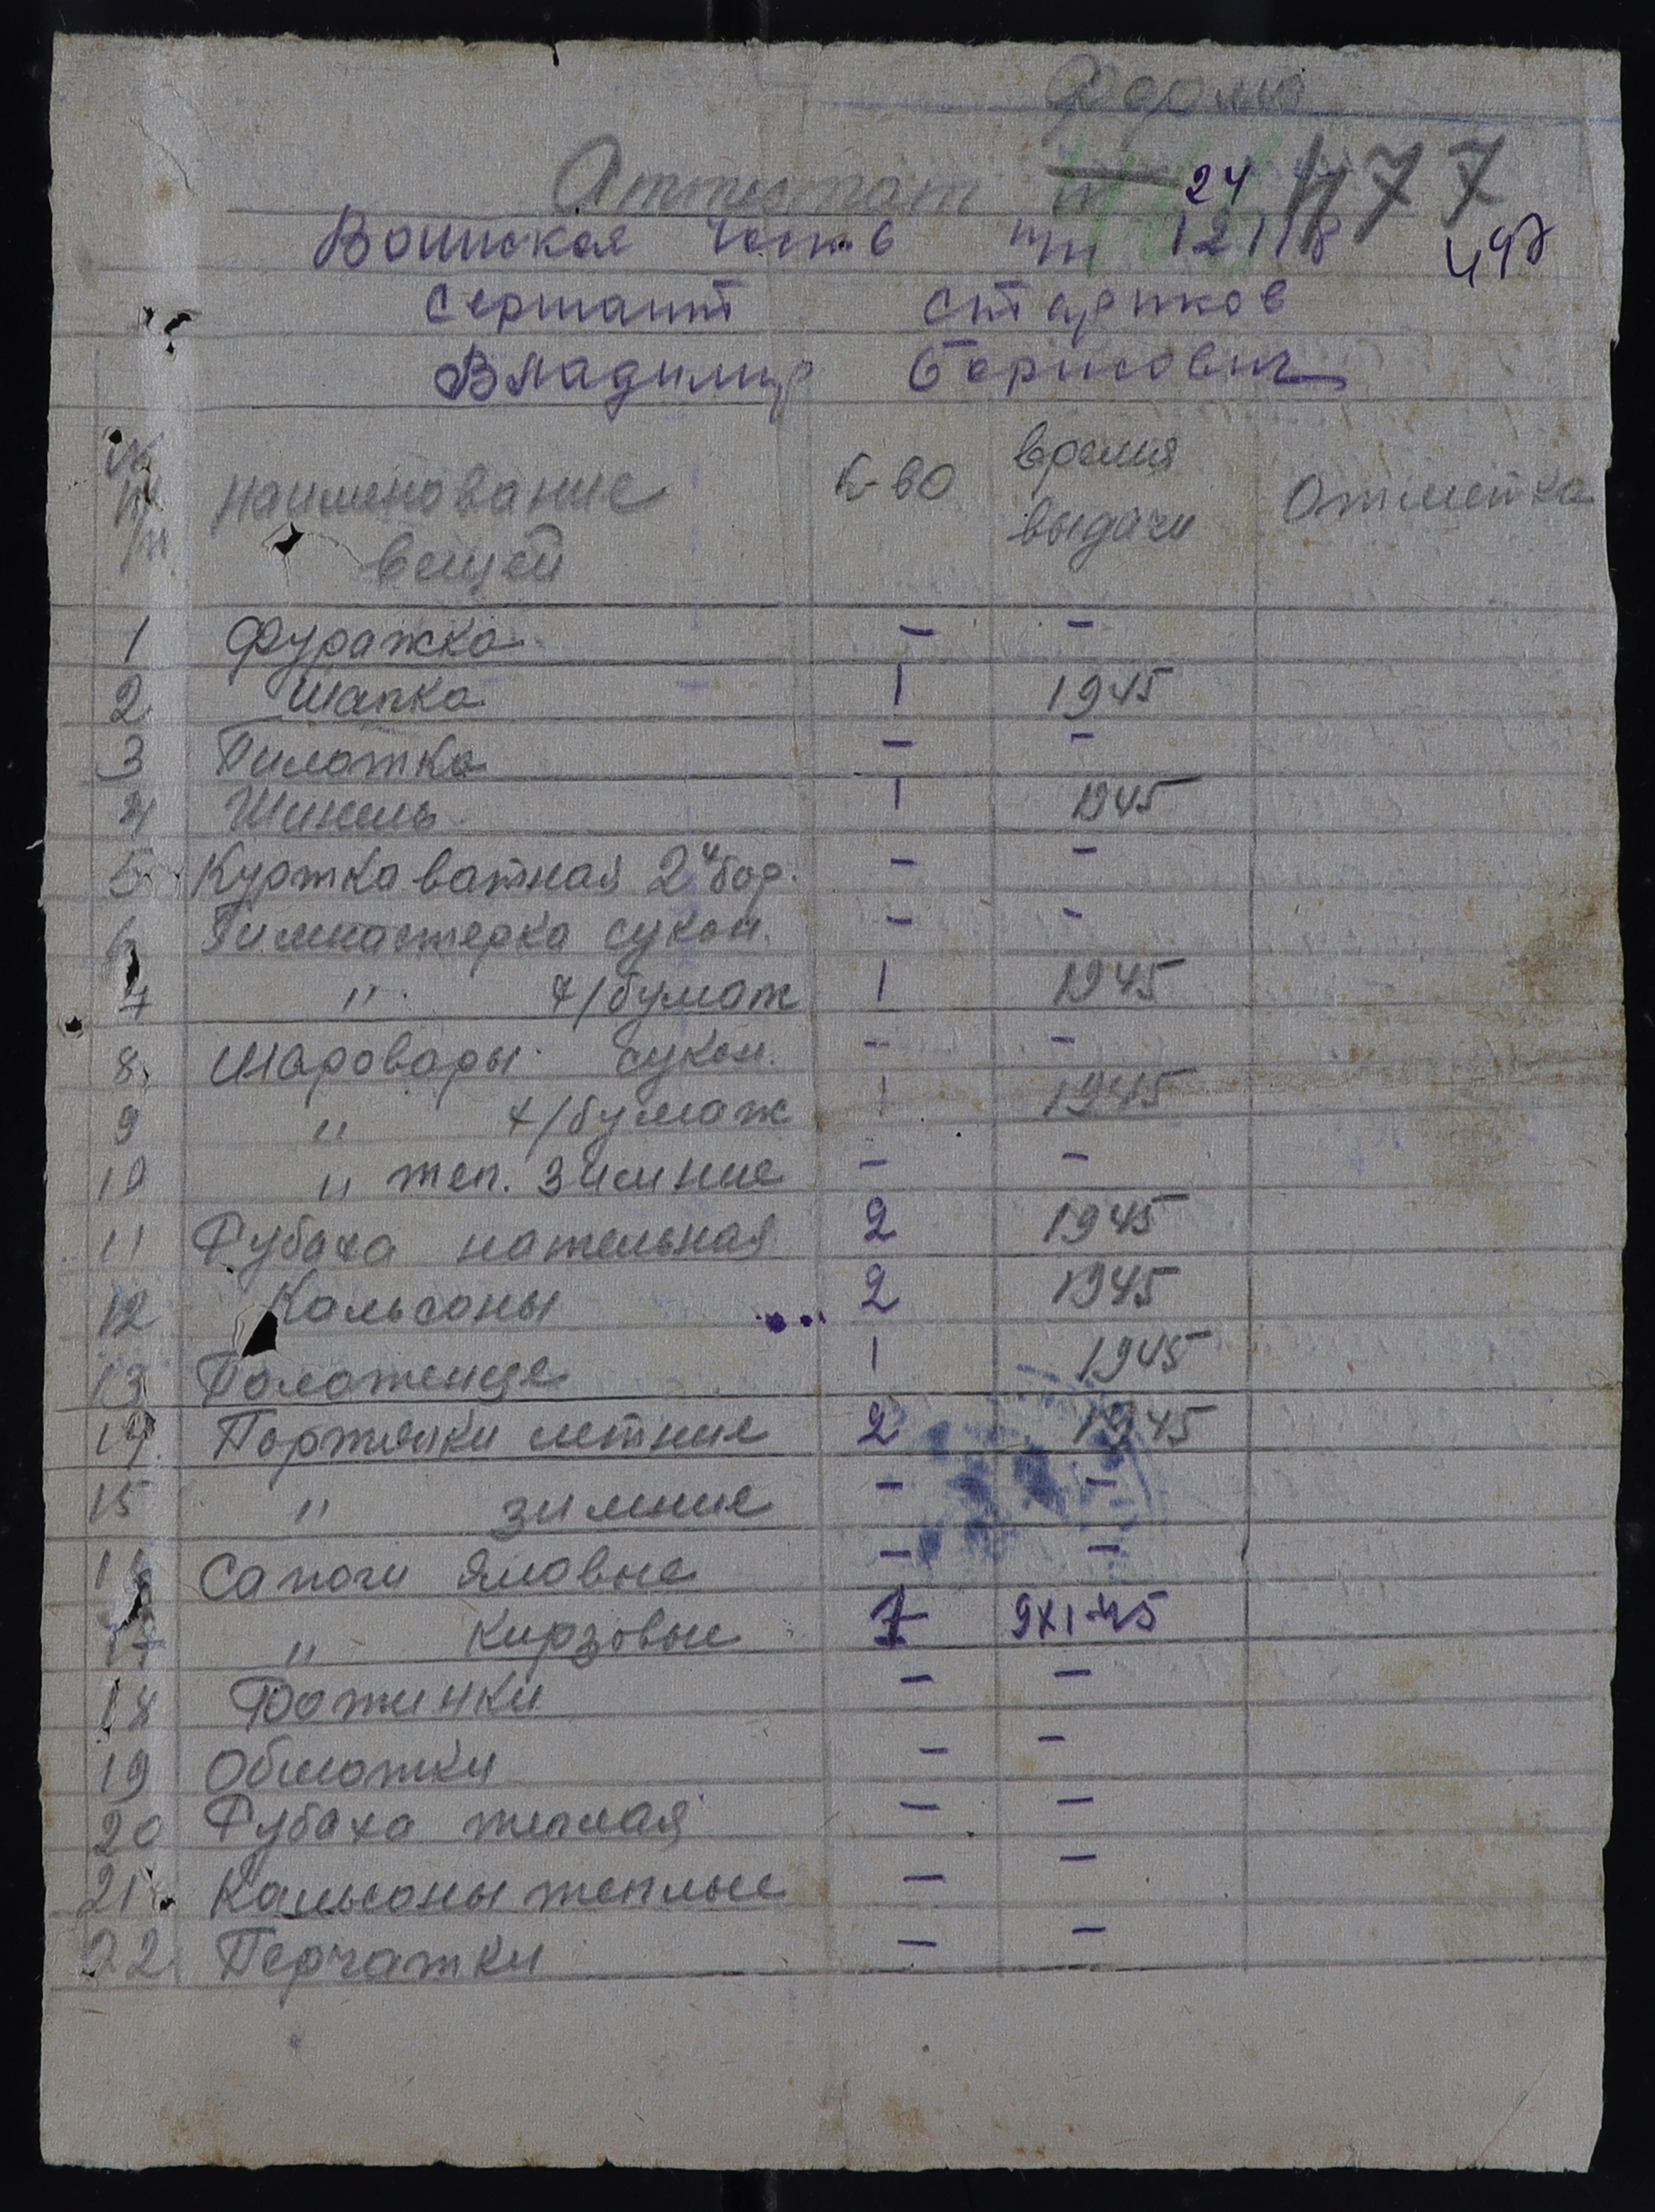 Форма
Аттестат 24 477
Воинская часть пп 12118 497
Сержант Стариков
Владимир Борисович
№ пп наименование вещей К-во время выдачи Отметка
1 Фуражка - -
2 Шапка 1 1945
3 Пилотка - -
4 Шинель 1 1945
5 Куртка ватная 2х бор. - -
6 Гимнастерка сукон. - -
7 " х/бумаж 1 1945
8 Шаровары сукон. - -
9 " х/бумаж 1 1945
10 " теп. зимние - -
11 Рубаха нательная 2 1945
12 Кальсоны 2 1945
13 Полотенце 1 1945
14 Портянки летние 2 1945
15 " зимние - -
16 Сапоги яловые - -
17 " Кирзовые 1 9 XI-45
18 Ботинки - -
19 Обмотки - -
20 Рубаха теплая - -
21 Кальсоны теплые - -
22 Перчатки - -